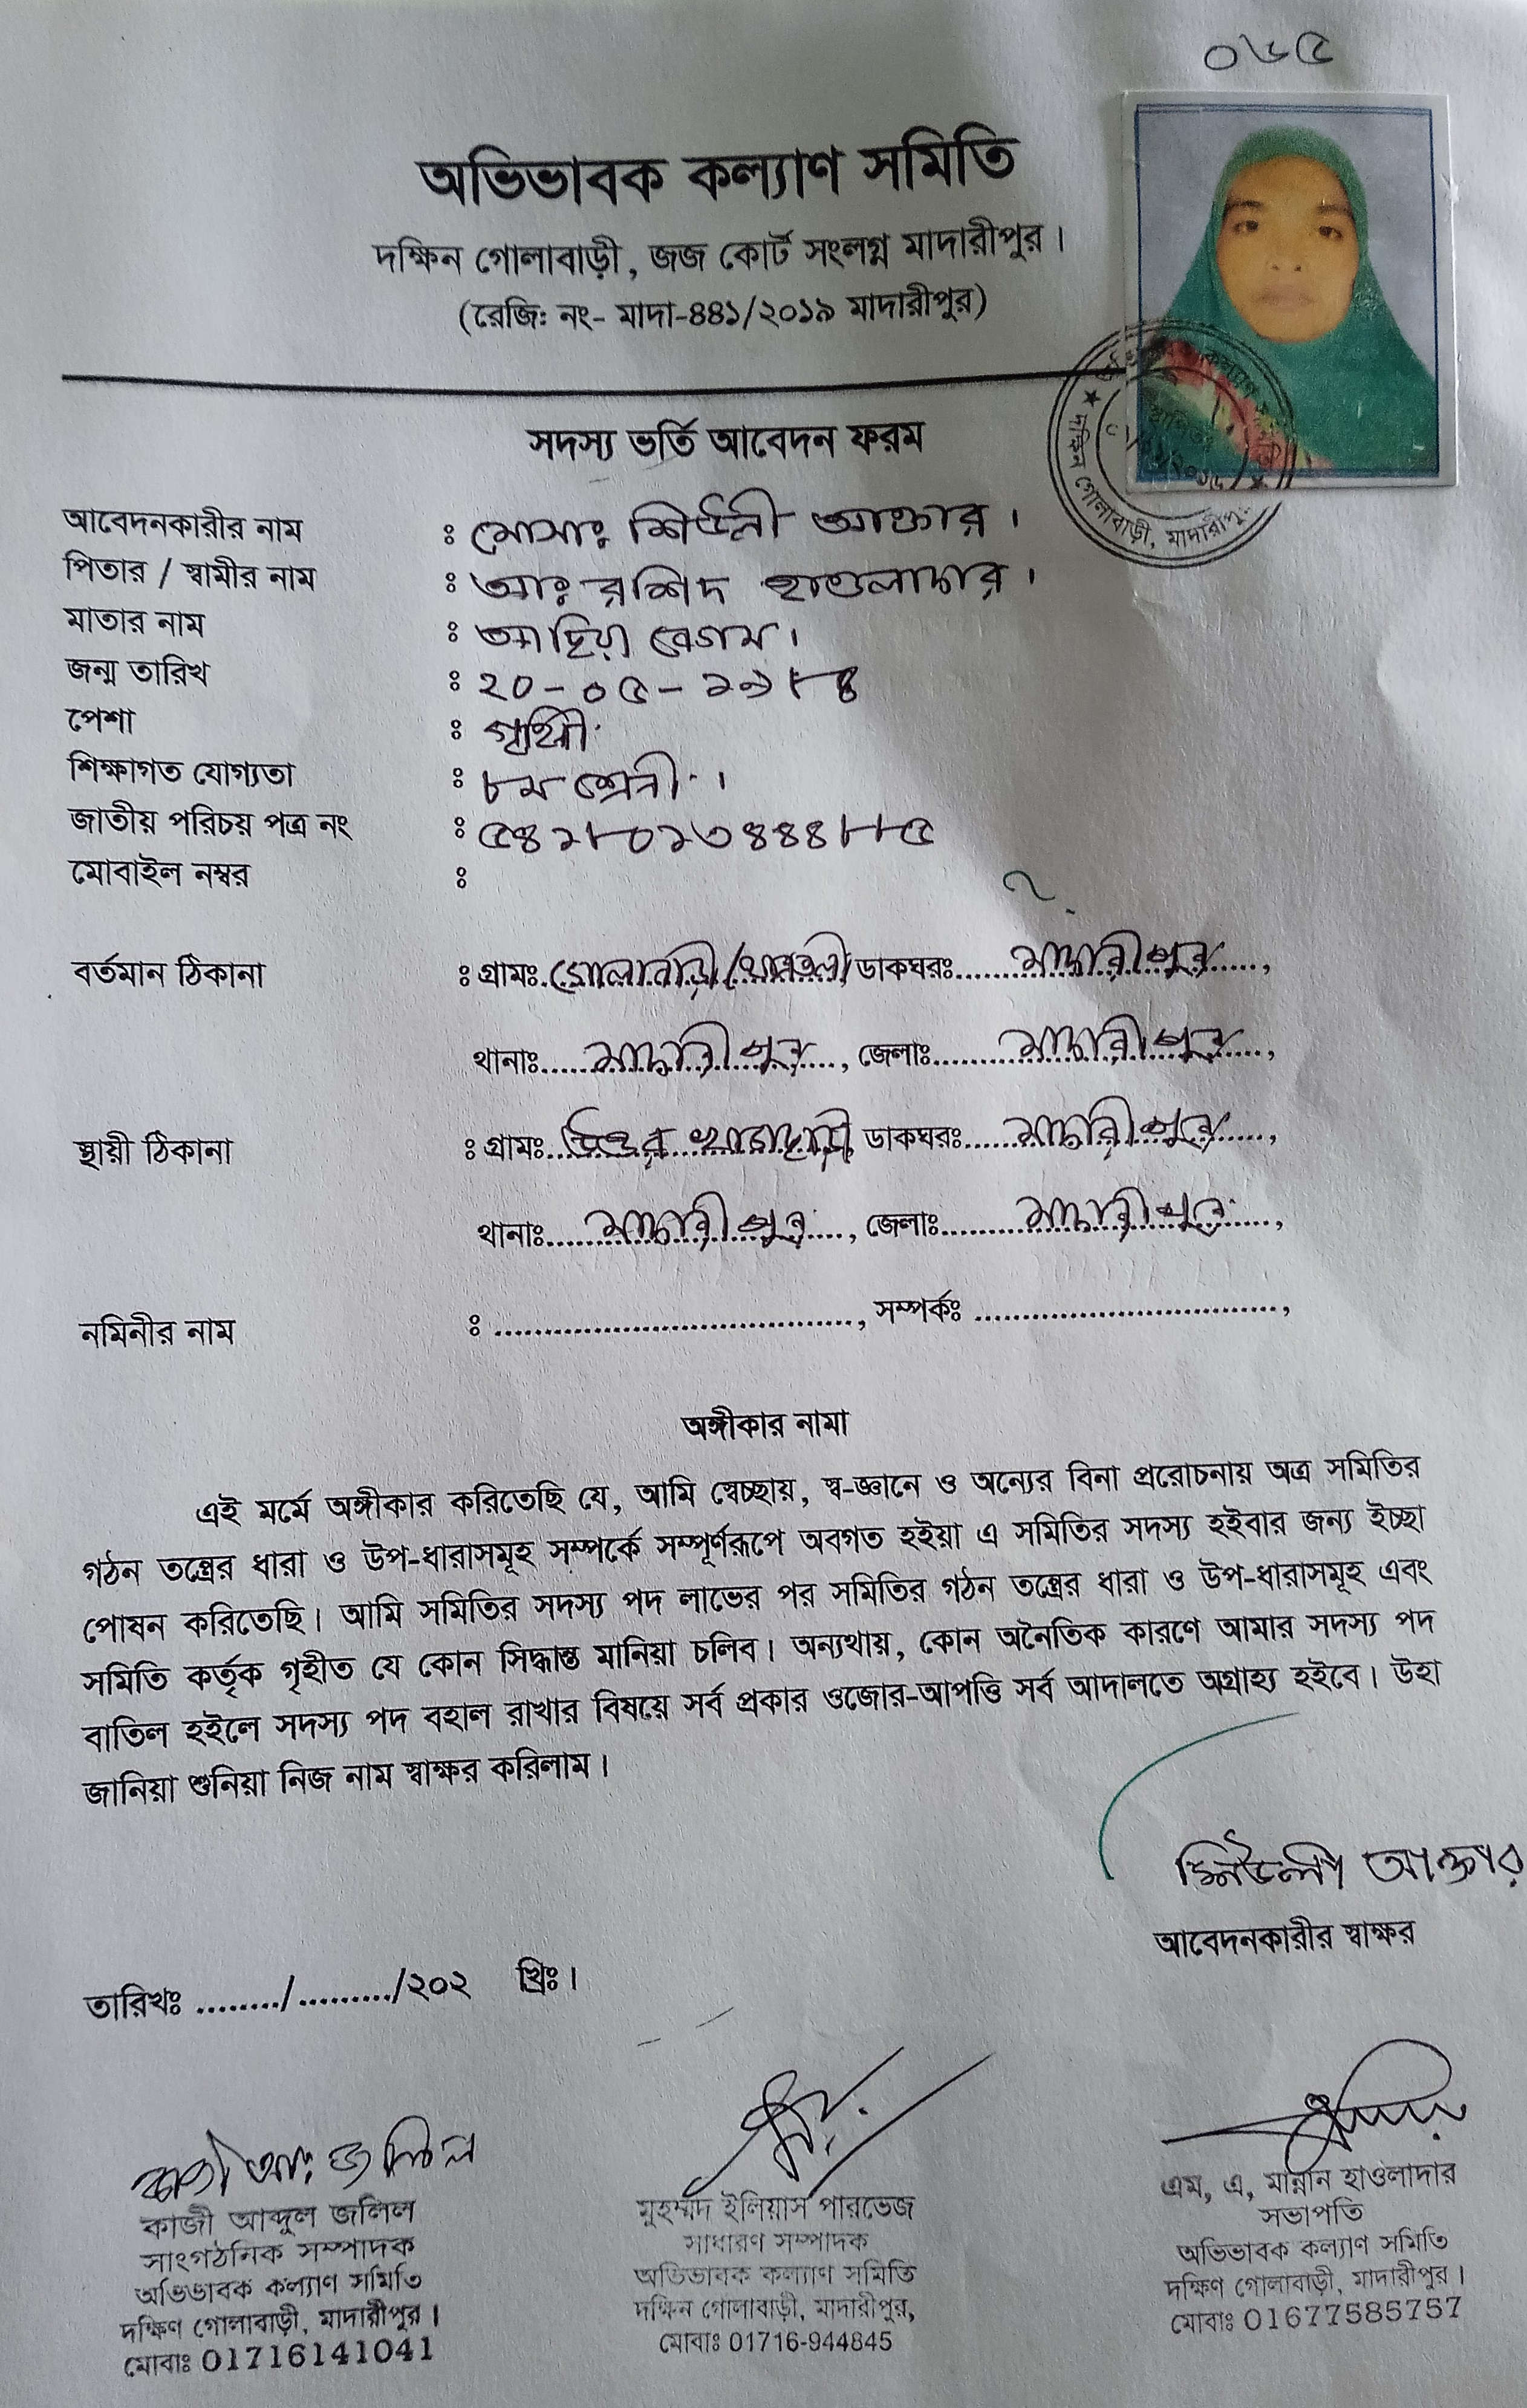 ০৬৫
অভিভাবক কল্যাণ সমিতি
দক্ষিন গোলাবাড়ী, জজ কোর্ট সংলগ্ন মাদারীপুর।
(রেজি: নং- মাদা-৪৪১/২০১৯ মাদারীপুর)
সদস্য ভর্তি আবেদন ফরম
আবেদনকারীর নাম : মোসাঃ শিউলী আক্তার।
পিতার / স্বামীর নাম : আঃ রশিদ হাওলাদার।
মাতার নাম : আছিয়া বেগম।
জন্ম তারিখ : ২০-০৫-১৯৮৪
পেশা :
শিক্ষাগত যোগ্যতা : ৮ম শ্রেনী।
জাতীয় পরিচয় পত্র নং : ৫৪২৮০১৩৪৪৪৮৮৫
মোবাইল নম্বর :
বর্তমান ঠিকানা : গ্রামঃ গোলাবাড়ী ডাকঘরঃ মাদারীপুর,
থানাঃ মাদারীপুর, জেলাঃ মাদারীপুর,
স্থায়ী ঠিকানা : গ্রামঃ উত্তর ডাকঘরঃ মাদারীপুর,
থানাঃ মাদারীপুর, জেলাঃ মাদারীপুর,
নমিনীর নাম : ................................, সম্পর্কঃ ................................,
অঙ্গীকার নামা
এই মর্মে অঙ্গীকার করিতেছি যে, আমি স্বেচ্ছায়, স্ব-জ্ঞানে ও অন্যের বিনা প্ররোচনায় অত্র সমিতির
গঠন তন্ত্রের ধারা ও উপ-ধারাসমূহ সম্পর্কে সম্পূর্ণরূপে অবগত হইয়া এ সমিতির সদস্য হইবার জন্য ইচ্ছা
পোষন করিতেছি। আমি সমিতির সদস্য পদ লাভের পর সমিতির গঠন তন্ত্রের ধারা ও উপ-ধারাসমূহ এবং
সমিতি কর্তৃক গৃহীত যে কোন সিদ্ধান্ত মানিয়া চলিব। অন্যথায়, কোন অনৈতিক কারণে আমার সদস্য পদ
বাতিল হইলে সদস্য পদ বহাল রাখার বিষয়ে সর্ব প্রকার ওজোর-আপত্তি সর্ব আদালতে অগ্রাহ্য হইবে। উহা
জানিয়া শুনিয়া নিজ নাম স্বাক্ষর করিলাম।
শিউলী আক্তার
আবেদনকারীর স্বাক্ষর
তারিখঃ ......../........./২০২ খ্রিঃ।
কাজী আঃ জলিল
কাজী আব্দুল জলিল
সাংগঠনিক সম্পাদক
অভিভাবক কল্যাণ সমিতি
দক্ষিণ গোলাবাড়ী, মাদারীপুর।
মোবাঃ 01716141041
মুহম্মদ ইলিয়াস পারভেজ
সাধারণ সম্পাদক
অভিভাবক কল্যাণ সমিতি
দক্ষিন গোলাবাড়ী, মাদারীপুর,
মোবাঃ 01716-944845
এম, এ, মান্নান হাওলাদার
সভাপতি
অভিভাবক কল্যাণ সমিতি
দক্ষিণ গোলাবাড়ী, মাদারীপুর।
মোবাঃ 01677585757